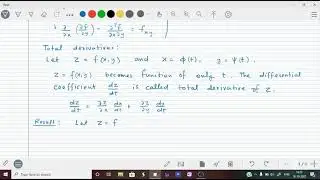 ∂/∂x (∂f/∂y) = ∂²f/∂x∂y = fxy
Total derivative :
Let z = f(x,y) and x = φ(t), y = ψ(t).
z = f(x,y) becomes function of only t. The differential
coefficient dz/dt is called total derivative of z.
dz/dt = ∂z/∂x dx/dt + ∂z/∂y dy/dt
Result : Let z = f